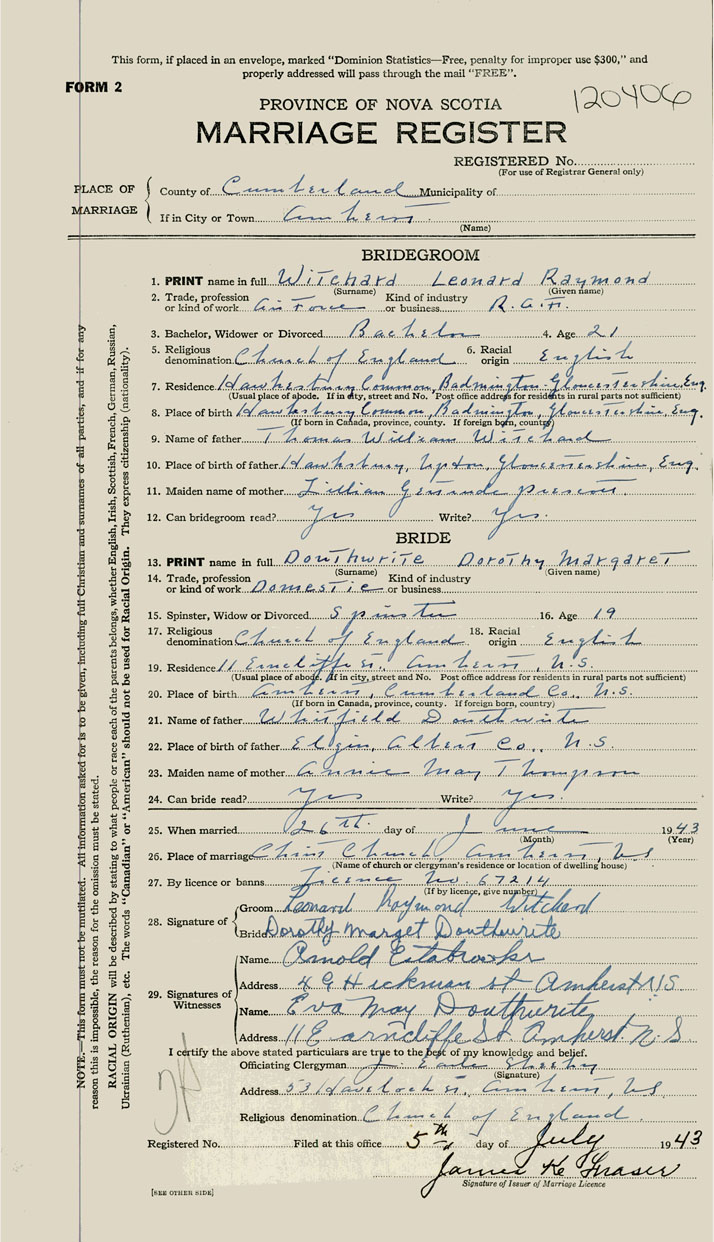 This form, if placed in an envelope, marked "Dominion Statistics—Free, penalty for improper use $300," and
properly addressed will pass through the mail "FREE".
FORM 2
120406
PROVINCE OF NOVA SCOTIA
MARRIAGE REGISTER
REGISTERED No.
(For use of Registrar General only)
PLACE OF MARRIAGE
County of Cumberland Municipality of
If in City or Town Amherst
(Name)
BRIDEGROOM
1. PRINT name in full Witchard Leonard Raymond
(Surname) (Given name)
2. Trade, profession or kind of work Air Force Kind of industry or business R.A.F.
3. Bachelor, Widower or Divorced Bachelor 4. Age 21
5. Religious denomination Church of England 6. Racial origin English
7. Residence Hawkesbury Common, Badmington-Gloucestershire, Eng.
(Usual place of abode. If in city, street and No. Post office address for residents in rural parts not sufficient)
8. Place of birth Hawkesbury Common, Badmington, Gloucestershire, Eng.
(If born in Canada, province, county. If foreign born, country)
9. Name of father Thomas William Witchard
10. Place of birth of father Hawksbury, Upton, Gloucestershire, Eng.
11. Maiden name of mother Lillian Gertrude Prescott.
12. Can bridegroom read? Yes Write? Yes.
BRIDE
13. PRINT name in full Douthwrite Dorothy Margaret
(Surname) (Given name)
14. Trade, profession or kind of work Domestic Kind of industry or business
15. Spinster, Widow or Divorced Spinster 16. Age 19
17. Religious denomination Church of England 18. Racial origin English
19. Residence 11 Erncliffe St., Amherst, N.S.
(Usual place of abode. If in city, street and No. Post office address for residents in rural parts not sufficient)
20. Place of birth Amherst, Cumberland Co., N.S.
(If born in Canada, province, county. If foreign born, country)
21. Name of father Whitfield Douthwrite
22. Place of birth of father Elgin, Albert Co., N.S.
23. Maiden name of mother Annie May Thompson
24. Can bride read? Yes Write? Yes.
25. When married 26th. day of June 1943
(Month) (Year)
26. Place of marriage Christ Church, Amherst, NS
(Name of church or clergyman's residence or location of dwelling house)
27. By licence or banns Licence No. 67214
(If by licence, give number)
28. Signature of
Groom Leonard Raymond Witchard
Bride Dorothy Marget Douthwrite
29. Signatures of Witnesses
Name Arnold Estabrooks
Address 49 Hickman st Amherst N S
Name Eva May Douthwrite
Address 11 Earncliffe St. Amherst. N. S
I certify the above stated particulars are true to the best of my knowledge and belief.
Officiating Clergyman J. Earle
(Signature)
Address 53 Havelock St., Amherst, NS
Religious denomination Church of England.
Registered No. Filed at this office 5th day of July 1943
James K Fraser
Signature of Issuer of Marriage Licence
[SEE OTHER SIDE]
NOTE.—This form must not be mutilated. All information asked for is to be given, including full Christian and surnames of all parties, and if for any
reason this is impossible, the reason for the omission must be stated.
RACIAL ORIGIN will be described by stating to what people or race each of the parents belongs, whether English, Irish, Scottish, French, German, Russian,
Ukrainian (Ruthenian), etc. The words "Canadian" or "American" should not be used for Racial Origin. They express citizenship (nationality).